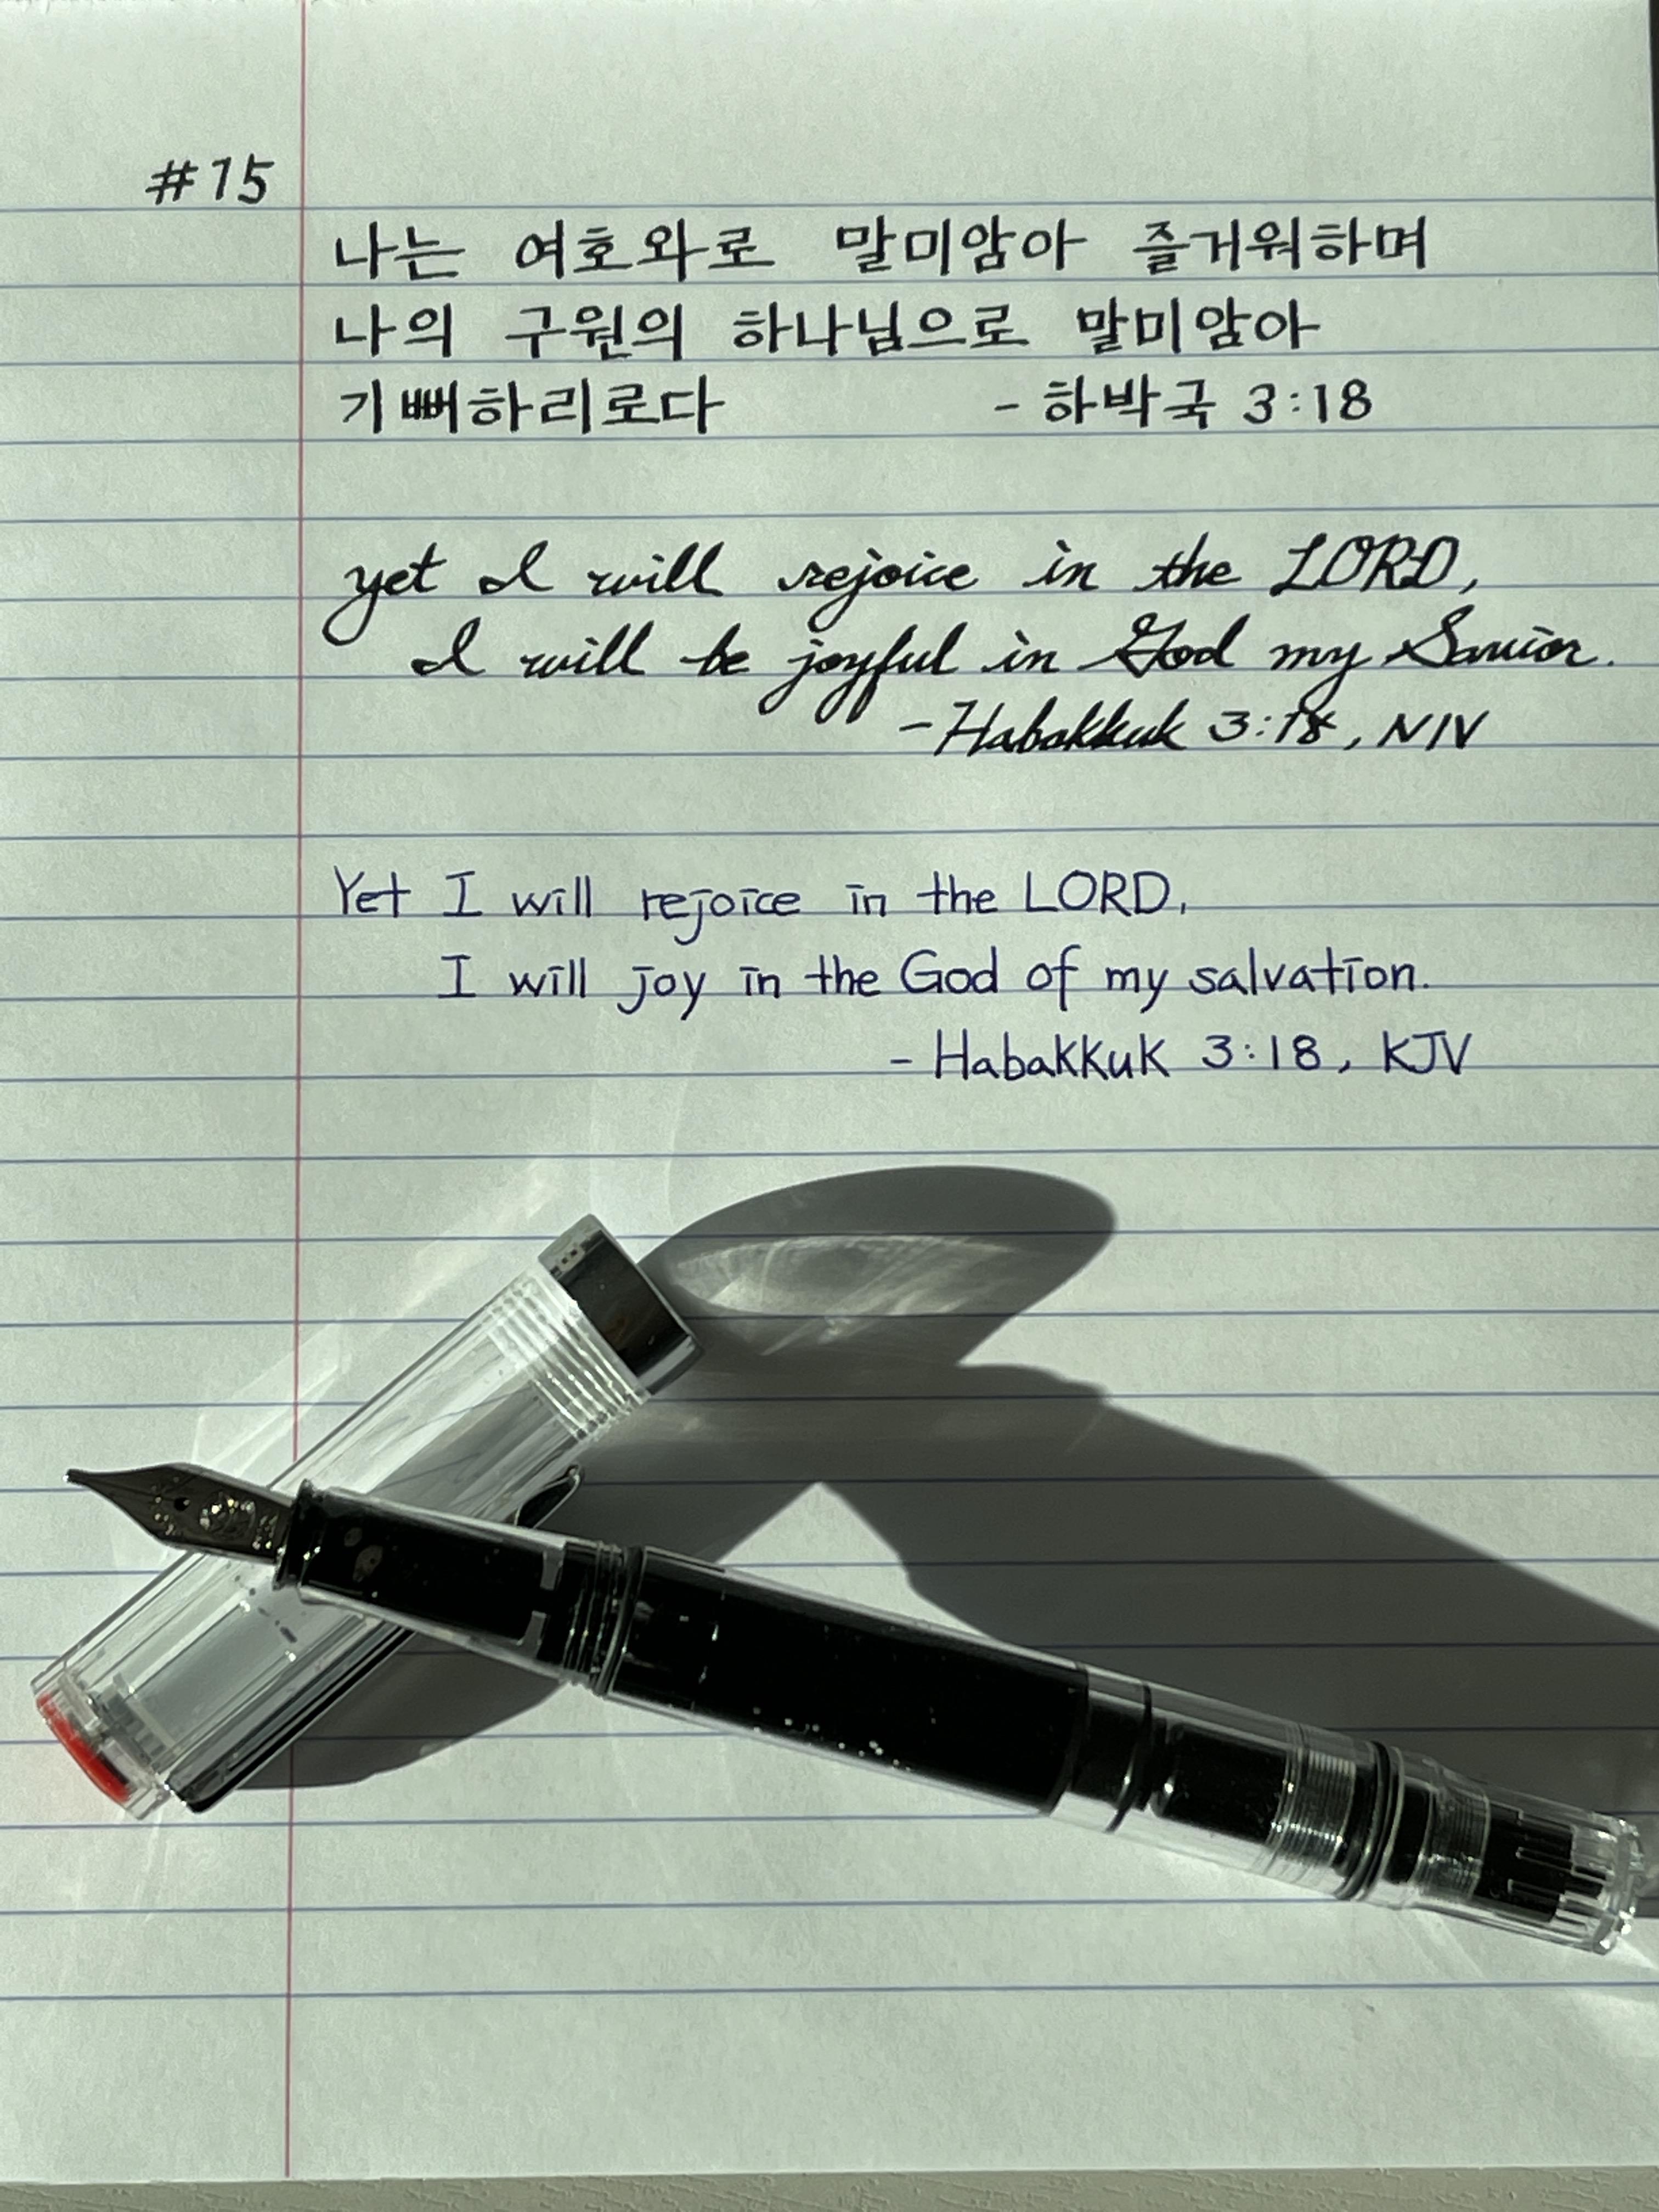 #15
나는 여호와로 말미암아 즐거워하며
나의 구원의 하나님으로 말미암아
기뻐하리로다 - 하박국 3:18
yet I will rejoice in the LORD,
I will be joyful in God my Savior.
- Habakkuk 3:18, NIV
Yet I will rejoice in the LORD,
I will joy in the God of my salvation.
- Habakkuk 3:18, KJV